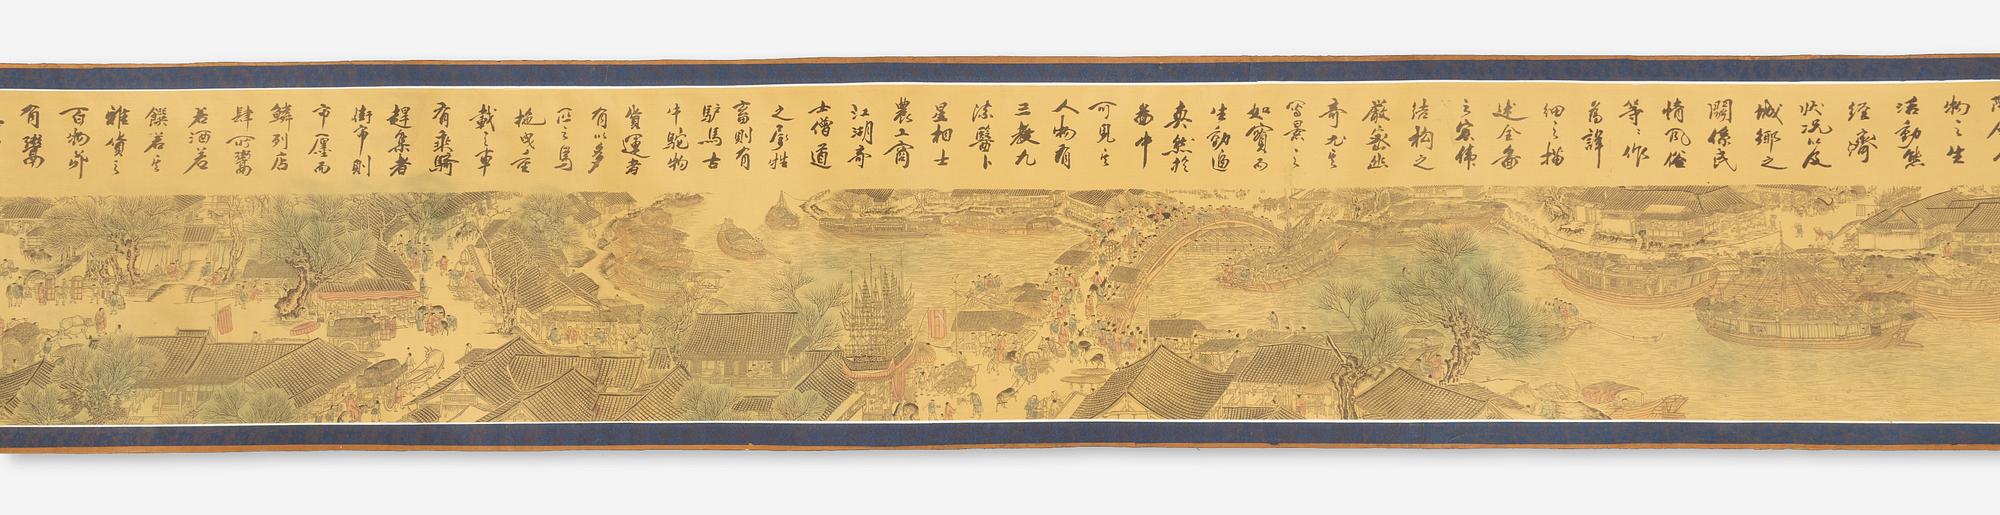 物之生
活動態
經濟
狀況以及
城鄉之
關係民
情風俗
等等作
為詳
細之描
述全畫
之宏偉
結構之
嚴密幽
奇尤其
寫景之
如實而
生動逼
真然於
畫中
可見其
人物有
三教九
流醫卜
星相士
農工商
江湖奇
士僧道
之屬牲
畜則有
驢馬
牛駝物
貨運者
有以多
匹之馬
拖曳重
載之車
有乘騎
趕集者
街市則
市廛而
鱗列店
肆所鬻
若酒若
饌若
雜貨之
百物
有鬻